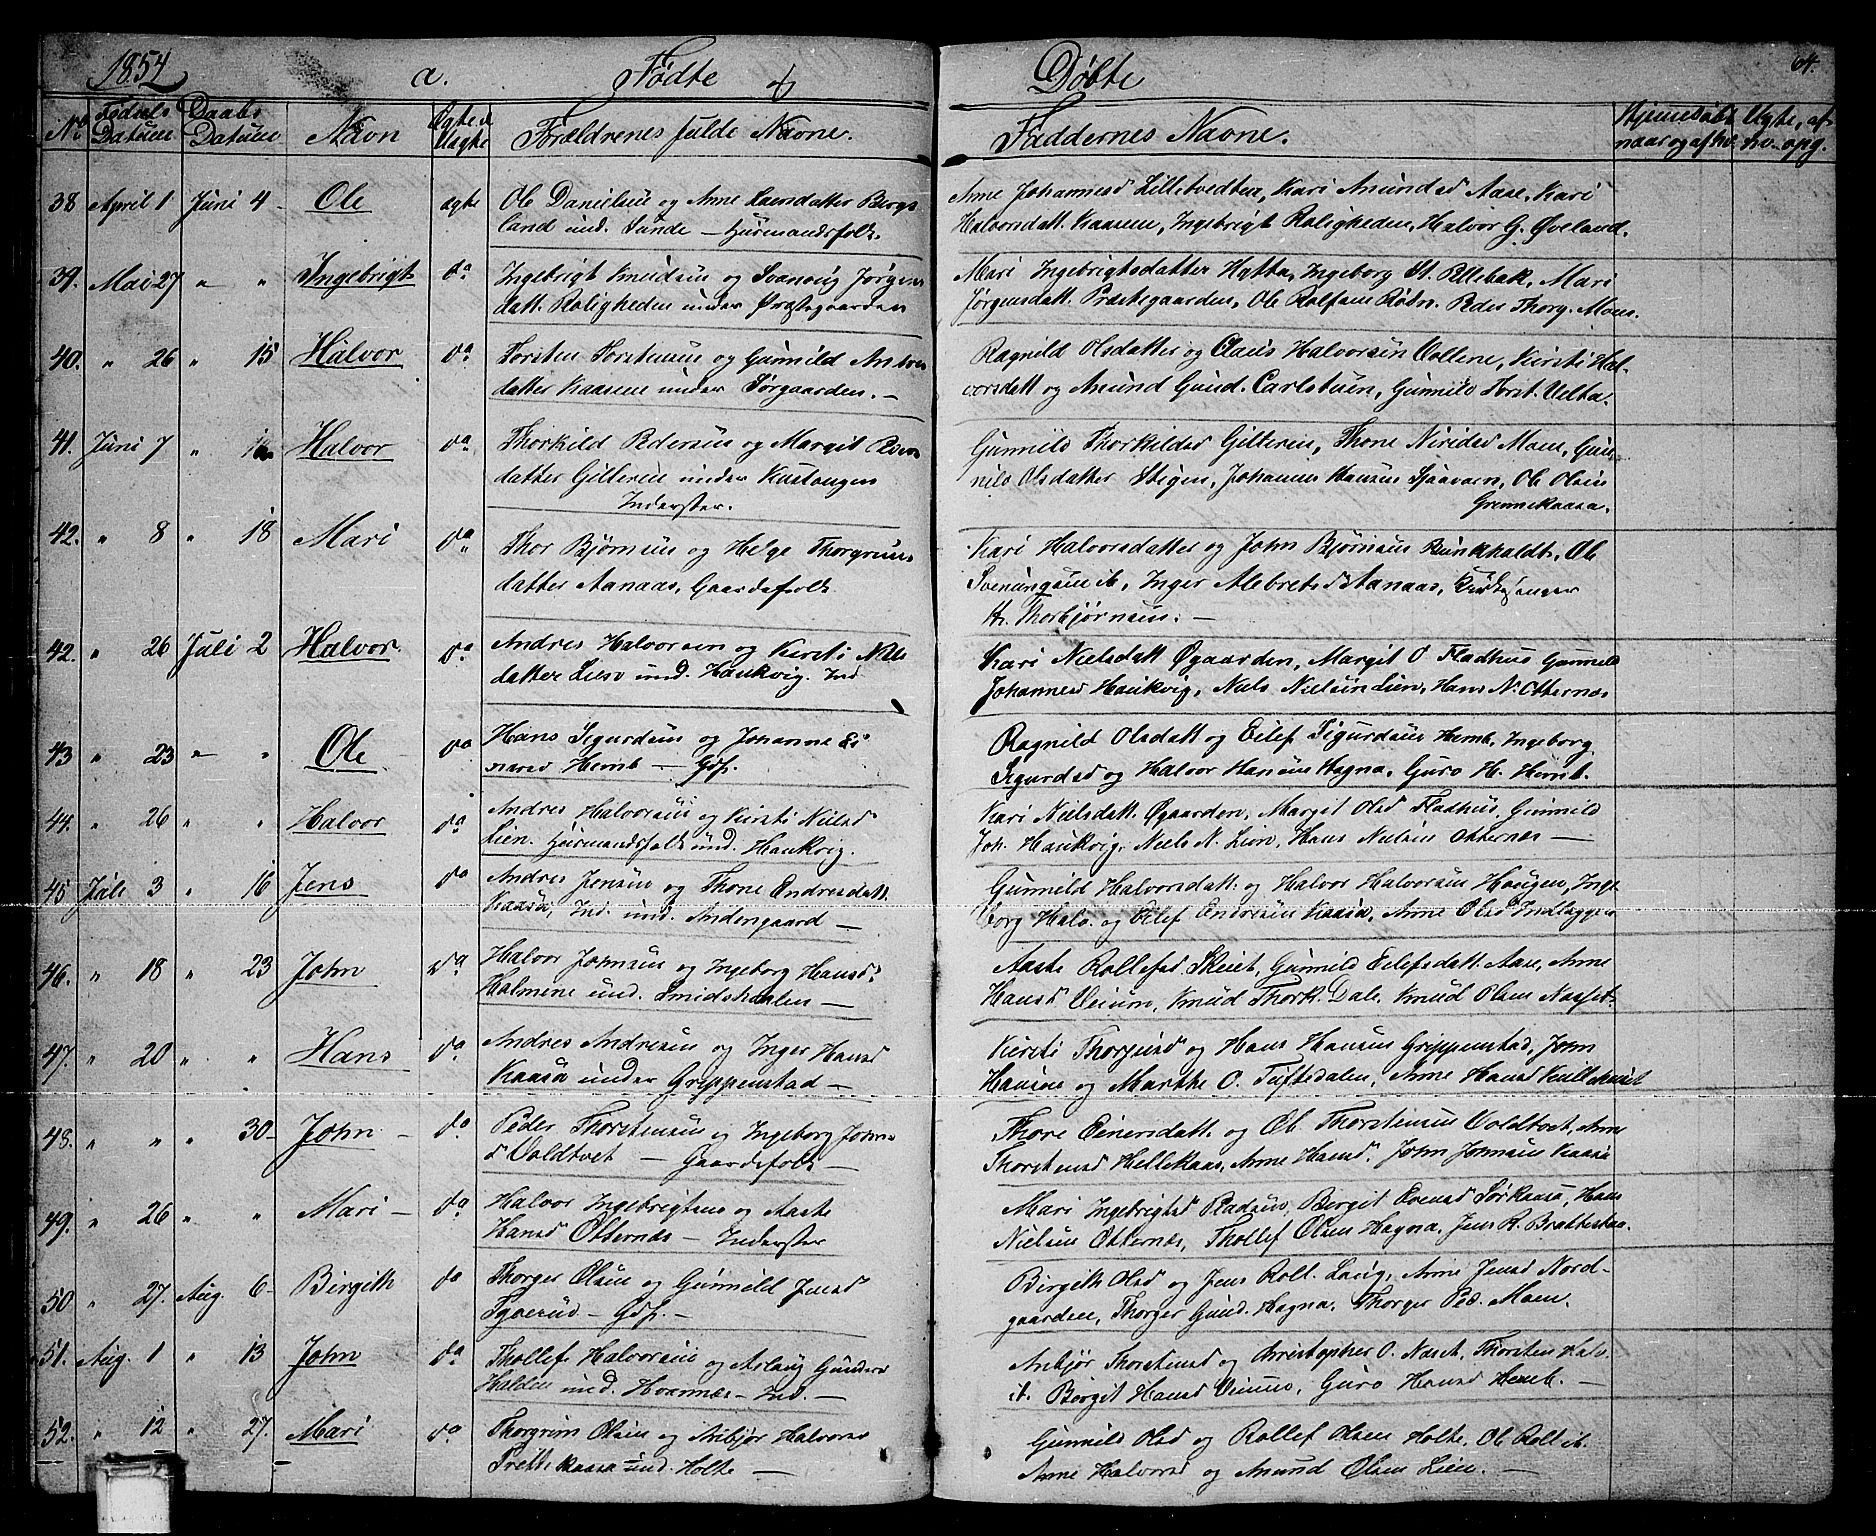 1854 a. Fødte og Døbte 64.
No Fødsels Datum Daabs Datum Navn Ægte el. Uægte Forældrenes fulde Navne. Faddernes Navne. Hjemmedøbt, naar og af hv. Uægte, af hv. opg.
38 April 1 Juni 4 Ole ægte Ole Danielsen og Anne Hansdatter Bergs
land und. Sunde - Huusmandsfolk.
Anne Johannesd Lilletvedten, Kari Amundsd Aase, Kari
Halvorsdatt. Kaasene, Ingebrigt Roligheden, Halvor G. Øveland.
39. Mai 27 " " Ingebrigt do Ingebrigt Knudsen og Svanaug Jørgens
datt. Roligheden under Præstegaarden
Mari Ingebrigtsdatter Hytta, Ingeborg St. Pellebak, Mari
Jørgensdatt. Præstegaarden, Ole Rolfsen Røbn. Peder Thorg. Moen.
40. " 26 " 15 Halvor do Torsten Torstensen og Gunnild Anders
datter Kaasene under Sørgaarden. -
Ragnild Olsdatter og Claus Halvorsen Vollene, Kirsti Hal-
vorsdatt og Amund Gund. Carlstuen, Gunnild Torst. Velta.
41. Juni 7 " Halvor do Thorkild Pedersen og Margit
datter Gilteren under Kastangen
Inderster.
Gunnild Thorkildsd Gilteren, Thone Niridsd Moen, Gun-
nild Olsdatter Stigen, Johannes Hansen Sjaavarn, Ole Olsen
Grennekaasa.
42. " 8 " 18 Mari do Thor Bjørnsen og Helge Thorgrims
datter Aanaas, Gaardsfolk
Kari Halvorsdatter og John Bjørnsen Bunkholdt, Ole
Sveningsen ib, Inger Alebretsd Aanaas, Kirkesanger
H. Thorbjørnsen. -
42. " 26 Juli 2 Halvor do Andres Halvorsen og Kirsti Niels
datter Lien und. Haukvig. Ind
Kari Nielsdatt Øgaarden, Margit O. Fladhus Gunnild
Johannesd Haukvig, Niels Nielsen Lien, Hans N. Otternæs
43 " 23 " " Ole do Hans Sigurdsen og Johanne Ei
narsd Hemb - Gdf.
Ragnild Olsdatt og Eilef Sigurdsen Hemb, Ingeborg
Sigurdsd og Halvor Hansen Hagna, Guro H. Hemb.
44. " 26 " " Halvor do Andres Halvorsen og Kirsti Nielsd
Lien. Huusmandsfolk und. Haukvig.
Kari Nielsdatt. Øgaarden, Margit Olsd Fladhus, Gunnild
Joh. Haukvig, Niels N. Lien, Hans Nielsen Otternæs -
45 Juli 3 " 16 Jens do Andres Jensen og Thone Endresdatt.
Kaasa, Ind. und. Andengaard -
Gunnild Halvorsdatt. og Halvor Halvorsen Haugen, Inge-
borg Halv. og Eilef Endresen Kaasa, Anne Olsd Indlaggen
46. " 18 " 23 John do Halvor Johnsen og Ingeborg Hansd
Halmene und. Smidshalen -
Aaste Rollefsd Skeiet, Gunnild Eilefsdatt. Aase, Anne
Hansd Veium, Knud Thork. Dale, Knud Olsen Næsset
47. " 20 " " Hans do Andres Andresen og Inger Hansd
Kaasa under Grippenstad -
Kirsti Thorjusd og Hans Hansen Grippenstad, John
Hansen og Marthe O. Tuftedalen, Anne Hansd
48. " " " 30 - John - do Peder Thorstensen og Ingeborg Johns
d Voldtvet - Gaardsfolk -
Thore Einersdatt. og Ole Thorstensen Voldtvet, Anne
Thorstensd Hellekaas, Anne Hansd. John Johnsen Kaasa
49. " 26 " " Mari - do Halvor Ingebrigtsen og Aaste
Hansd Otternæs - Inderster
Mari Ingebrigtsd Radsun, Bergit Evensd Sørkaasa, Hans
Nielsen Otternæs, Thollef Olsen Hagna, Jens R. Brattestaa.
50 " 27. Aug. 6 - Birgith do Thorger Olsen og Gunnild Jensd
- Gdf. -
Birgith Olsd og Jens Roll. Laug, Anne Jensd Nord-
gaarden, Thorger Gund. Hagna. Thorger Ped. Moen.
51. Aug. 1 " 13 John do Thollef Halvorsen og Aslaug Gunders
Halden und. Hvamnæs - Ind. -
Anbjør Thorstensd og Christopher O. Næset, Thorsten Halv.
ib. Børgit Hansd Veium, Guro Hansd Hemb. -
52. " 12 " 27. Mari do Thorgrim Olsen og Anbjør Halvorsd
Trettekaasa und. Holte -
Gunnild Olsd og Rollef Olsen Holte. Ole Roll ib.
Anne Halvorsd og Amund Olsen Lien. -